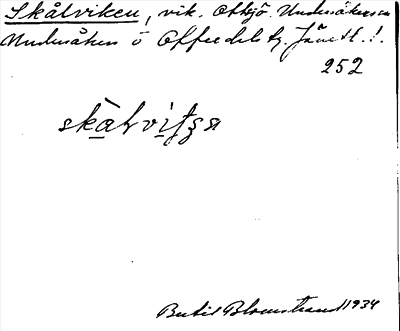 Skålviken, vik. Ottsjö. Undersåkers sn
Undersåkers o Offerdals tg. Jämtl. l.
252
Bertil Blomstrand 1934